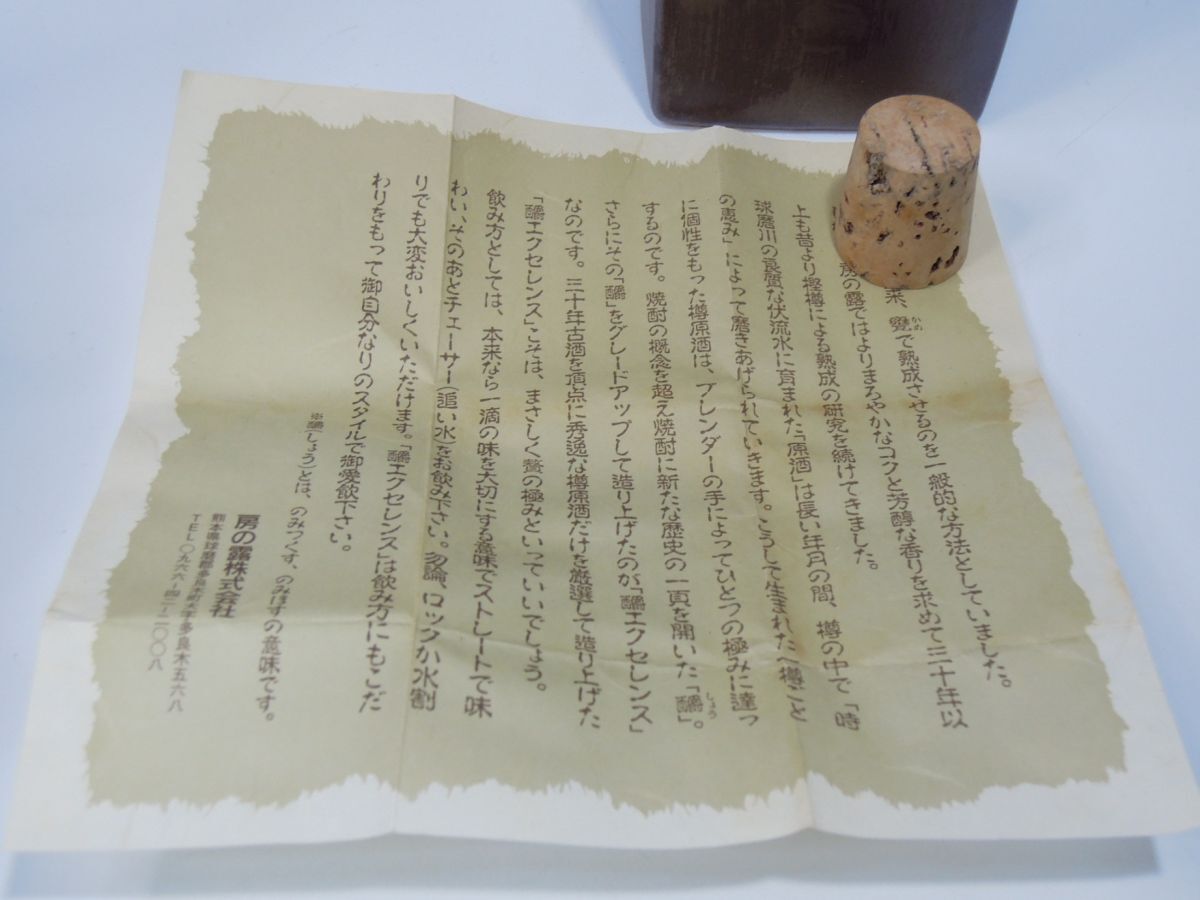 来、甕で熟成させるのを一般的な方法としていました。
かめ
房の露ではよりまろやかなコクと芳醇な香りを求めて三十年以
上も昔より樫樽による熟成の研究を続けてきました。
球磨川の良質な伏流水に育まれた「原酒」は長い年月の間、樽の中で「時
の恵み」によって磨きあげられていきます。こうして生まれた〈樽ごと
に個性をもった樽原酒は、ブレンダーの手によってひとつの極みに達っ
するのです。焼酎の概念を超え焼酎に新たな歴史の一頁を開いた「釂」。
しょう
さらにその「釂」をグレードアップして造り上げたのが「釂エクセレンス」
なのです。三十年古酒を頂点に秀逸な樽原酒だけを厳選して造り上げた
「釂エクセレンス」こそは、まさしく贅の極みといっていいでしょう。
飲み方としては、本来なら一滴の味を大切にする意味でストレートで味
わい、そのあとチェーサー(追い水)をお飲み下さい。勿論、ロックか水割
りでも大変おいしくいただけます。「釂エクセレンス」は飲み方にもこだ
わりをもって御自分なりのスタイルで御愛飲下さい。
※釂(しょう)とは、のみつくす、のみほすの意味です。
房の露株式会社
熊本県球磨郡多良木町大字多良木五六八
TEL〇九六六-四二-二〇〇八